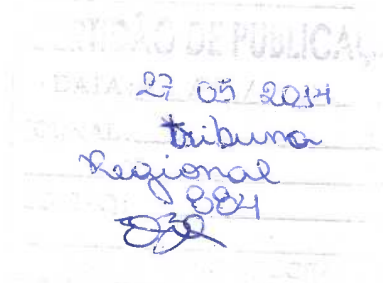 CERTIDÃO DE PUBLICAÇ
DATA: 27 05 / 2014
JORNAL: tribuna
Regional
884